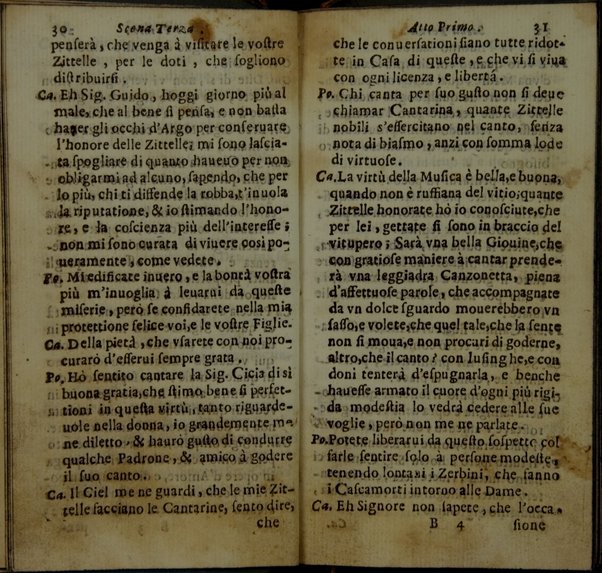 30 Scena Terza.
penserà, che venga à visitare le vostre
Zittelle, per le doti, che sogliono
distribuirsi.
Ca. Eh Sig. Guido, hoggi giorno più al
male, che al bene si pensa, e non basta
hauer gli occhi d'Argo per conseruare
l'honore delle Zittelle; mi sono lascia-
ta spogliare di quanto haueuo per non
obligarmi ad alcuno, sapendo, che per
lo più, chi ti diffende la robba, t'inuola
la riputatione, & io stimando l'hono-
re, e la coscienza più dell'interesse;
non mi sono curata di viuere così po-
ueramente, come vedete.
Po. Mi edificate inuero, e la bontà vostra
più m'inuoglia à leuarui da queste
miserie, però se confidarete nella mia
protettione felice voi, e le vostre Figlie.
Ca. Della pietà, che vsarete con noi pro-
curarò d'esserui sempre grata.
Po. Hò sentito cantare la Sig. Cicia di sì
buona gratia, che stimo bene si perfet-
tioni in questa virtù, tanto riguarde-
uole nella donna, io grandemente me
ne diletto, & haurò gusto di condurre
qualche Padrone, & amico à godere
il suo canto.
Ca. Il Ciel me ne guardi, che le mie Zit-
telle facciano le Cantarine, sento dire,
che
Atto Primo. 31
che le conuersationi siano tutte ridot-
te in Casa di queste, e che vi si viua
con ogni licenza, e libertà.
Po. Chi canta per suo gusto non si deue
chiamar Cantarina, quante Zittelle
nobili s'essercitano nel canto, senza
nota di biasmo, anzi con somma lode
di virtuose.
Ca. La virtù della Musica è bella, e buona,
quando non è ruffiana del vitio; quante
Zittelle honorate hò io conosciute, che
per lei, gettate si sono in braccio del
vitupero; Sarà vna bella Giouine, che
con gratiose maniere à cantar prende-
rà vna leggiadra Canzonetta, piena
d'affettuose parole, che accompagnate
da vn dolce sguardo mouerebbero vn
sasso, e volete, che quel tale, che la sente
non si moua, e non procuri di goderne,
altro, che il canto? con lusinghe, e con
doni tenterà d'espugnarla, e benche
hauesse armato il cuore d'ogni più rigi-
da modestia lo vedrà cedere alle sue
voglie, però non me ne parlate.
Po. Potete liberarui da questo sospetto col
farle sentire solo à persone modeste,
tenendo lontani i Zerbini, che fanno
i Cascamorti intorno alle Dame.
Ca. Eh Signore non sapete, che l'occa-
B 4 sione